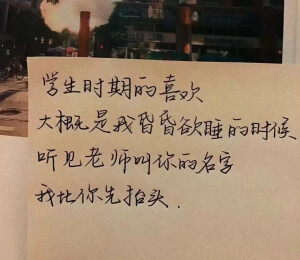 学生时期的喜欢
大概是我昏昏欲睡的时候
听见老师叫你的名字
我比你先抬头.